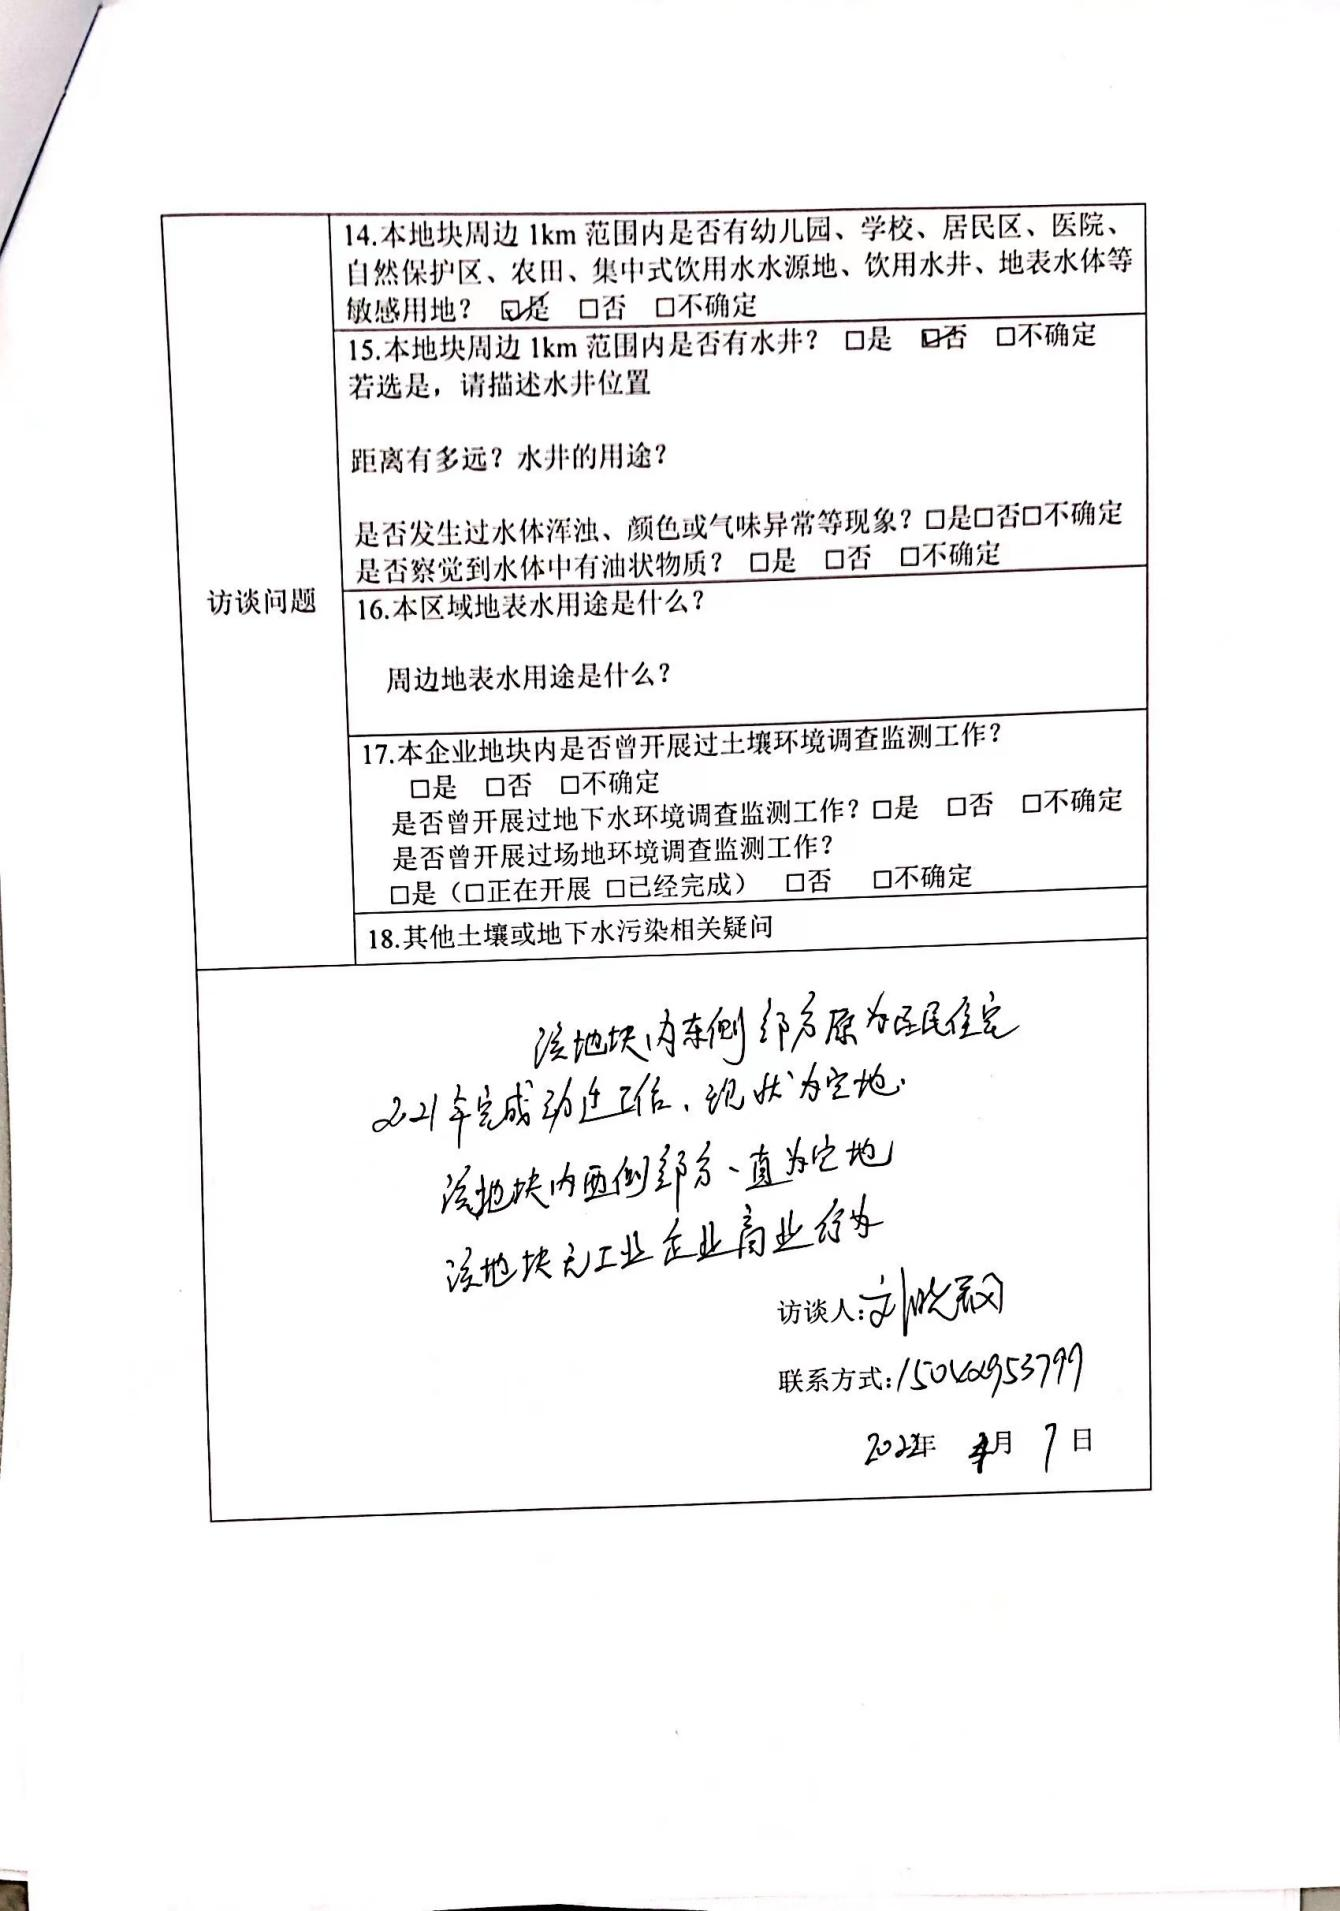 14.本地块周边 1km 范围内是否有幼儿园、学校、居民区、医院、
自然保护区、农田、集中式饮用水水源地、饮用水井、地表水体等
敏感用地？ ☑是 □否 □不确定
15.本地块周边 1km 范围内是否有水井？ □是 ☑否 □不确定
若选是，请描述水井位置
距离有多远？水井的用途？
是否发生过水体浑浊、颜色或气味异常等现象？□是□否□不确定
是否察觉到水体中有油状物质？ □是 □否 □不确定
访谈问题
16.本区域地表水用途是什么？
周边地表水用途是什么？
17.本企业地块内是否曾开展过土壤环境调查监测工作？
□是 □否 □不确定
是否曾开展过地下水环境调查监测工作？□是 □否 □不确定
是否曾开展过场地环境调查监测工作？
□是（□正在开展 □已经完成） □否 □不确定
18.其他土壤或地下水污染相关疑问
该地块内东侧部分原为居民住宅
2021年完成动迁工作、现状为空地.
该地块内西侧部分一直为空地
该地块无工业企业商业行为
访谈人:刘晓
联系方式:
2022年 月 7 日